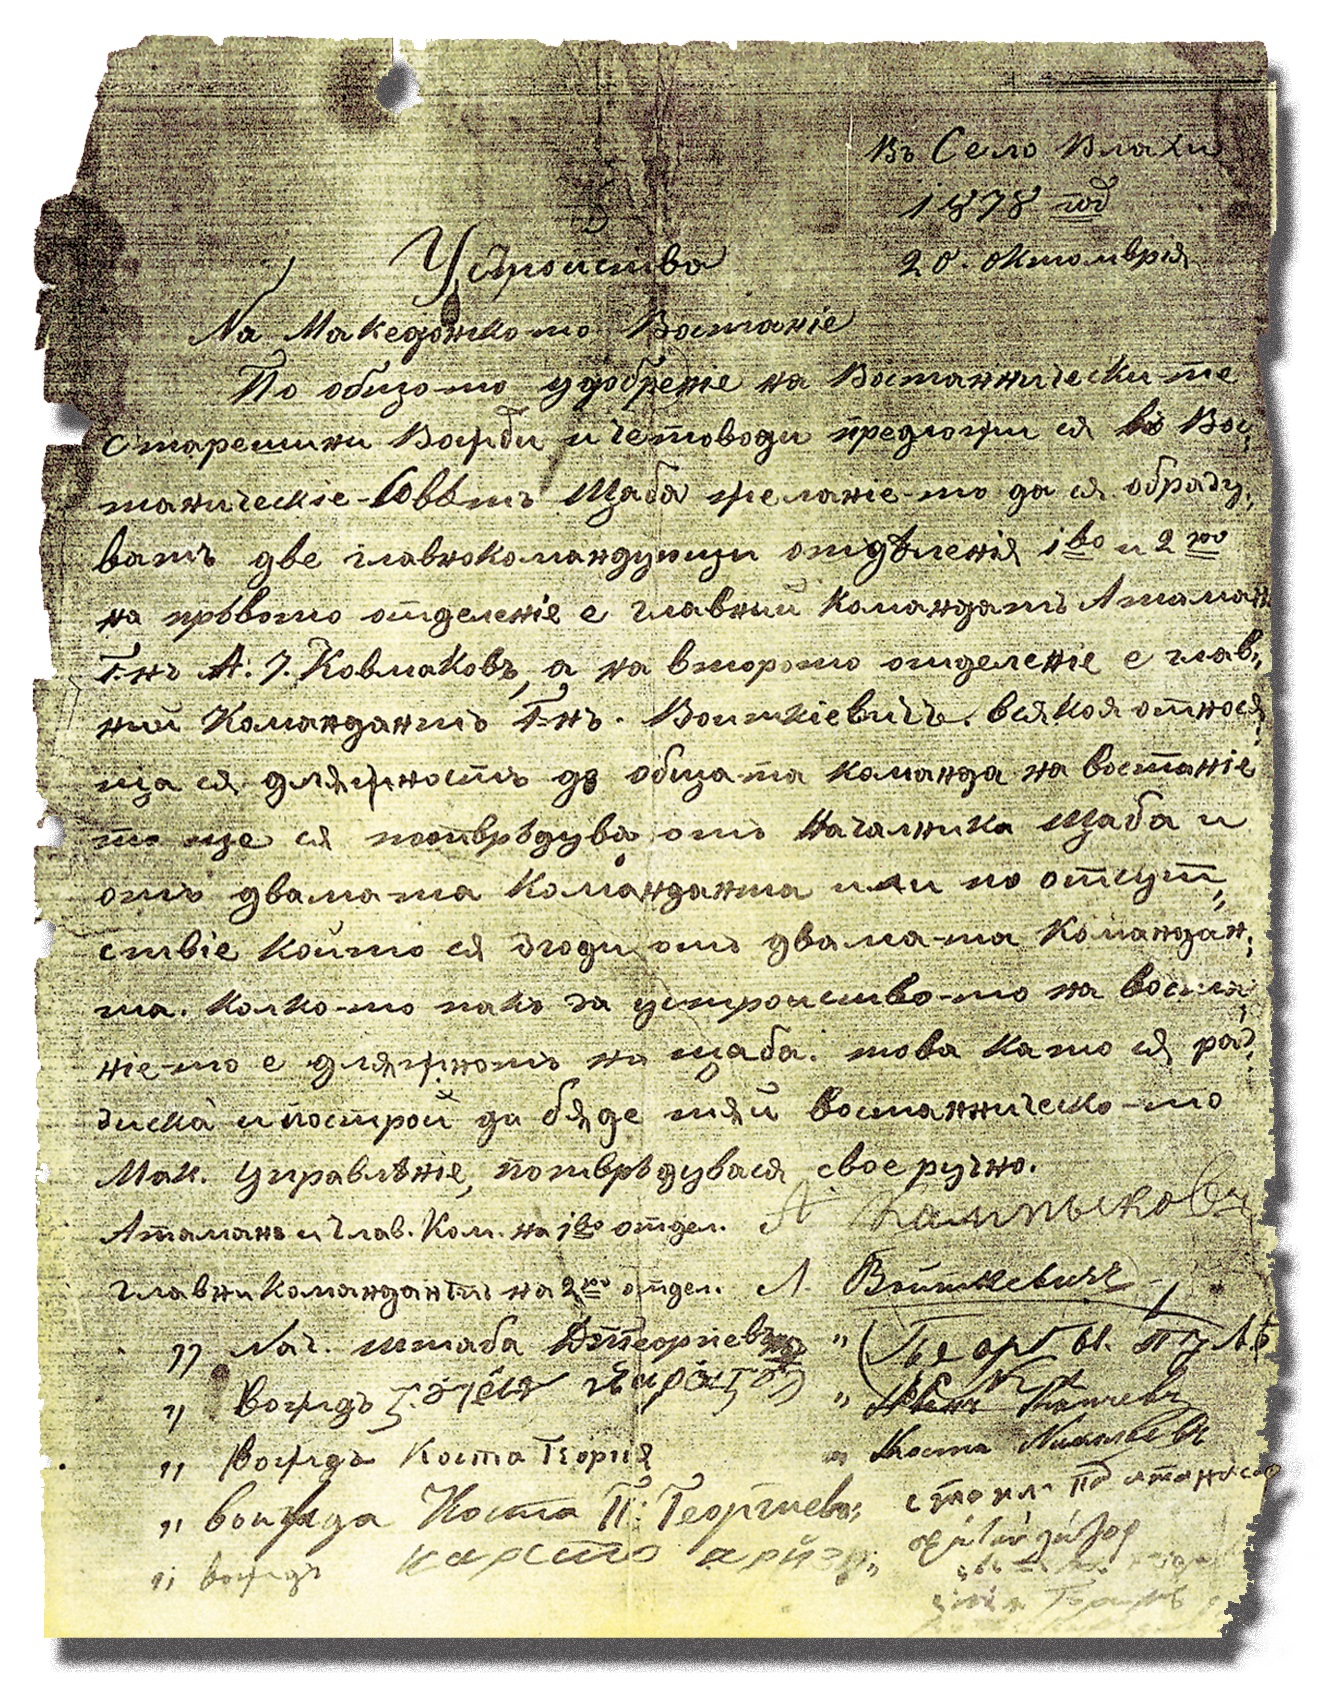 Въ Село Влахи
1878 год
20. октомврія
Устройства
На Македонско то Востаніе
По общо-то удобреніе на Востаннически-те
Старешини Вожди и Четоводи предложи ся въ Вос,
таническіе-Совѣтъ Щаба желаніе-то да ся образу,
ватъ две главнокомандующи отдѣленія 1во и 2ro
на првото отделеніе е главний Командатъ Атаман
Г-нъ А. І. Ковмаковъ, а на второто отделеніе е глав,,
ний Командантъ Г-нъ. Воиткіевичъ. всякоя относя,
ща ся длъжность до общата команда на востаніе
то ще ся потврьдува отъ Началника Щаба и
отъ двамата Команданта или по отсут,,
ствіе който ся згоди отъ двама-та Командан,
та. колко-то пакъ за устроиство-то на воста,
ніе-то е дляжностъ на щаба. това като ся раз,
тиска и построй да бяде тяй востанническо-то
Мак. Управлѣніе, потврьдувася своеручно.
Атаманъ и Глав. Ком. на 1во отдел. А.
Главни Командантъ на 2ro отдел. Л. Войткевичъ
,, Нач. штаба " Георги.
,, вождъ "
,, вождъ Коста Георгия " Коста Николовъ
,, вожда Коста П: Георгиевъ,
,, вождъ карсто